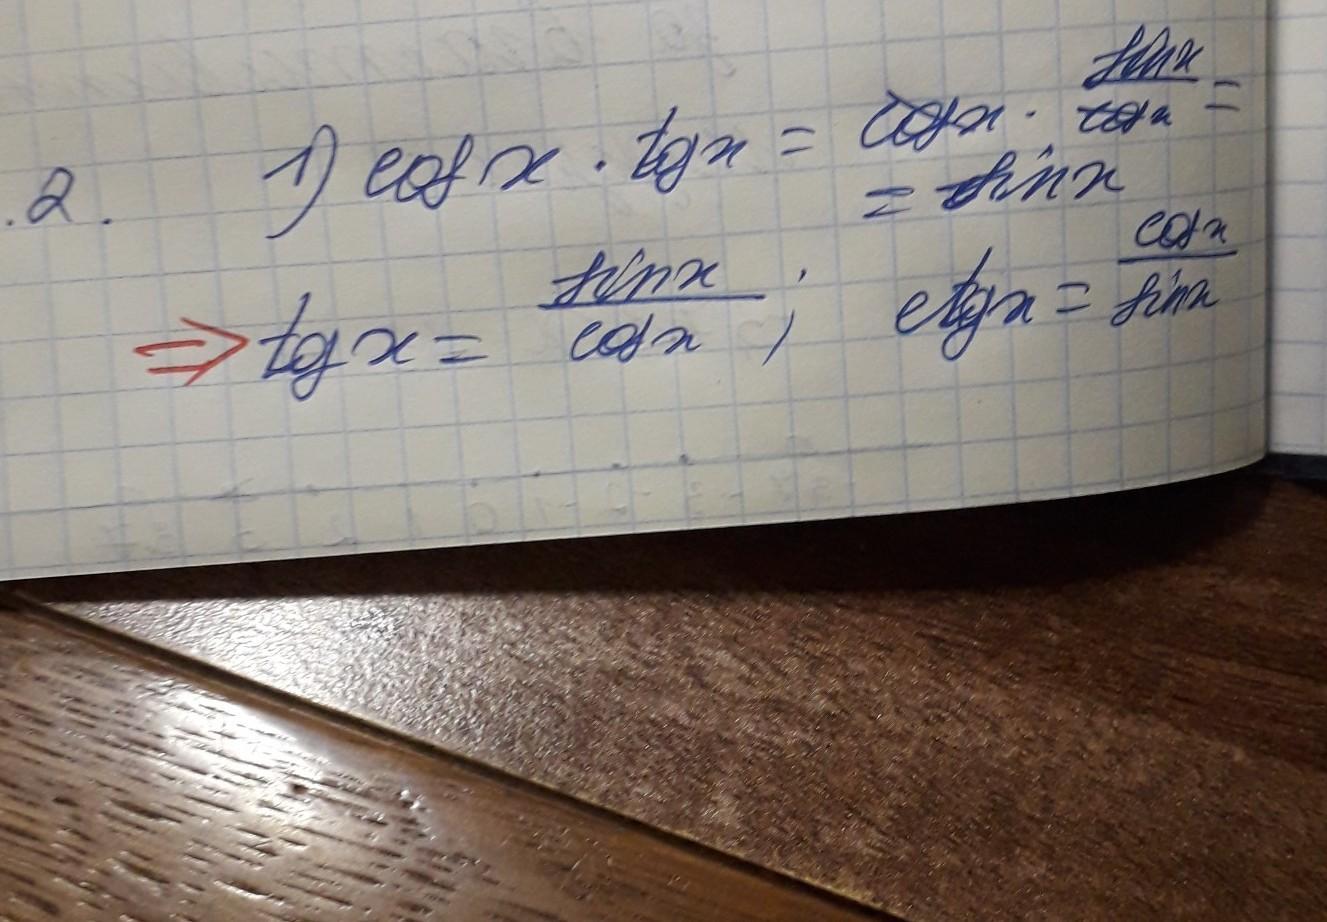 .2. 1) cos x · tg x = cos x · sin x / cos x =
= sin x
⇒ tg x = sin x / cos x ; ctg x = cos x / sin x